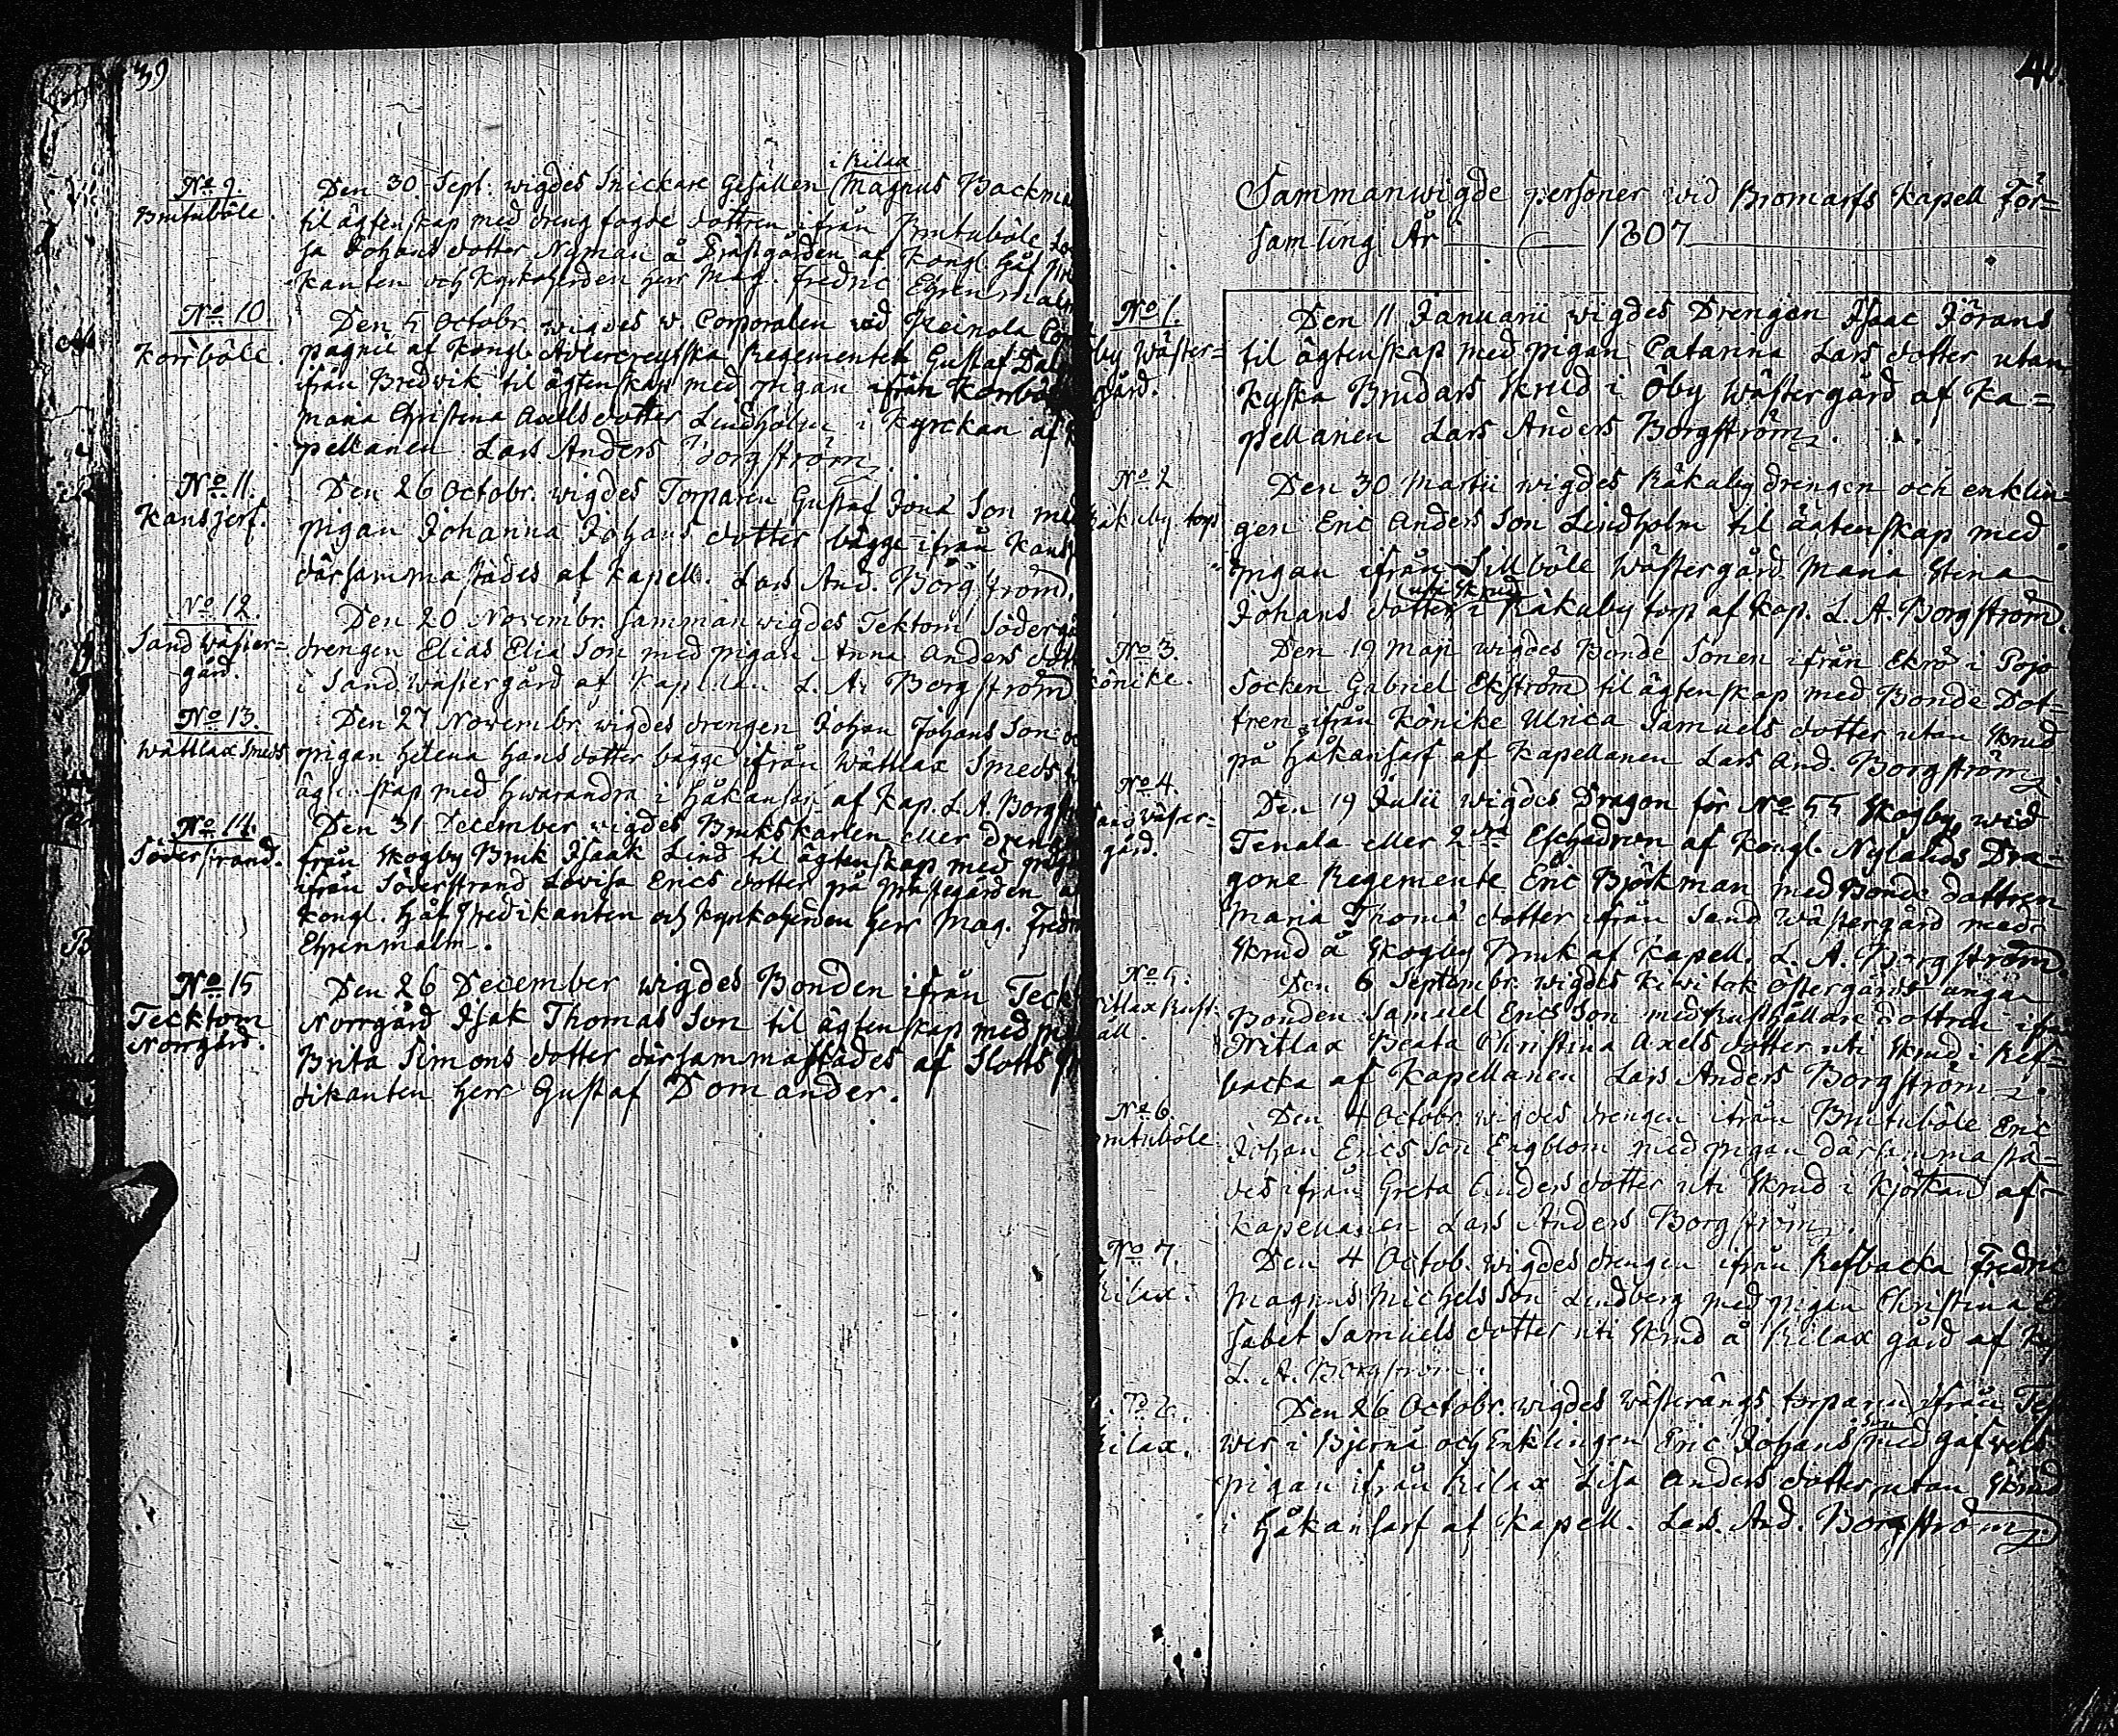 39
No 9.
Brutuböle.
i Rilax
Den 30 Sept. wigdes Snickare Gesällen Magnus Backma
til ägtenskap med dreng fogde dottren ifrån Brutuböle
sa Johans dotter Nyman å Prästgården af Kongl. Håf
kanten och Kyrkoherden Herr Mag. Fredric Ehrenmalm
No 10.
Korrböle.
Den 5 Octobr. wigdes v. Corporalen vid Heinola
pagnie af Kongl. Adlercreutzska Regementet Gustaf Dal
ifrån Bredvik til ägtenskap med pigan ifrån Korrbö
Maria Christina Axels dotter Lindholm i Kyrckan af
pellanen Lars Anders Borgström.
No 11.
Kansjerf.
Den 26 Octobr. wigdes Torparen Gustaf Jona Son med
pigan Johanna Johans dotter bägge ifrån Kans
därsammastädes af Kapell. Lars And. Borgström.
No 12.
Sand Wäster=
gård.
Den 20 Novembr. sammanwigdes Tektom Södergå
drengen Elias Elia Son med pigan Anna Anders dott
i Sand Wästergård af Kapellan L. A. Borgström
No 13.
Wättlax Smeds
Den 27 Novembr. wigdes drengen Johan Johans Son
pigan Helena Hans dotter bägge ifrån Wättlax Smeds
ägtenskap med hwarandra i Håkansarf af Kap. L. A. Borgst
No 14.
Söderstrand.
Den 31 December wigdes Brukskarlen eller drengen
från Skogby Bruk Isaak Lind til ägtenskap med pig
ifrån Söderstrand Lovisa Erics dotter på Prästegården
Kongl. Håf Predikanten och Kyrkoherden Herr Mag. Fredr
Ehrenmalm.
No 15
Tecktom
Norrgård.
Den 26 December wigdes Bonden ifrån Teck
Norrgård Isak Thomas Son til ägtenskap med
Brita Simons dotter därsammastädes af Slotts
dikanten Herr Gustaf Domander.
Sammanwigde personer vid Bromarfs Kapell För=
samling År 1807
No 1.
by Wäster=
gård.
Den 11 Januarii wigdes Drengen Isaac Jörans
til ägtenskap med pigan Catarina Lars dotter utan
kyska Brudars Skrud i Öby Wästergård af Ka=
pellanen Lars Anders Borgström.
No 2
Råkuby torp
Den 30 Martii wigdes Råkuby drengen och enklin=
gen Eric Anders Son Lindholm til ägtenskap med
pigan ifrån Sillböle Wästergård Maria Stina
uti Skrud
Johans dotter i Råkuby torp af Kap. L. A. Borgström.
No 3.
Könike.
Den 19 Maji wigdes Bonde Sonen ifrån Ekrö i Pojo
Socken Gabriel Ekström til ägtenskap med Bonde Dot=
tren ifrån Könike Ulrica Samuels dotter utan Skrud
på Håkansarf af Kapellanen Lars And. Borgström
No 4.
Sand Wäster=
gård.
Den 19 Julii wigdes Dragon för No 55 Skogby wid
Tenala eller 2dra Esqhadron af Kongl. Nylands Dra=
gone Regemente Eric Björkman med Bonde dottren
Maria Thoma dotter ifrån Sand Wästergård med
Skrud å Skogby Bruk af Kapell. L. A. Borgström.
No 5.
ritlax Rust=
all.
Den 6 Septembr. wigdes Kiwitok Östergårds unga
Bonden Samuel Erics Son med Rusthållare dottren ifrån
Pritlax Beata Christina Axels dotter uti Skrud i Ref=
backa af Kapellanen Lars Anders Borgström.
No 6.
rutuböle
Den 4 Octobr. wigdes drengen ifrån Brutuböle Eric
Johan Erics Son Engblom med pigan därsammastä=
des ifrån Greta Anders dotter uti Skrud i Kyrkan af
Kapellanen Lars Anders Borgström.
No 7.
Rilax.
Den 4 Octob. wigdes drengen ifrån Refbacka Fredric
Magnus Michels Son Lindberg med pigan Christina
sabet Samuels dotter uti Skrud å Rilax gård af Kap
L. A. Borgström.
No 8.
Rilax.
Den 26 Octobr. wigdes Wästerängs torparen ifrån
wer i Bjerna och Enklingen Eric Johans son med
pigan ifrån Rilax Lisa Anders dotter utan Skrud
i Håkansarf af Kapell. Lars And. Borgström